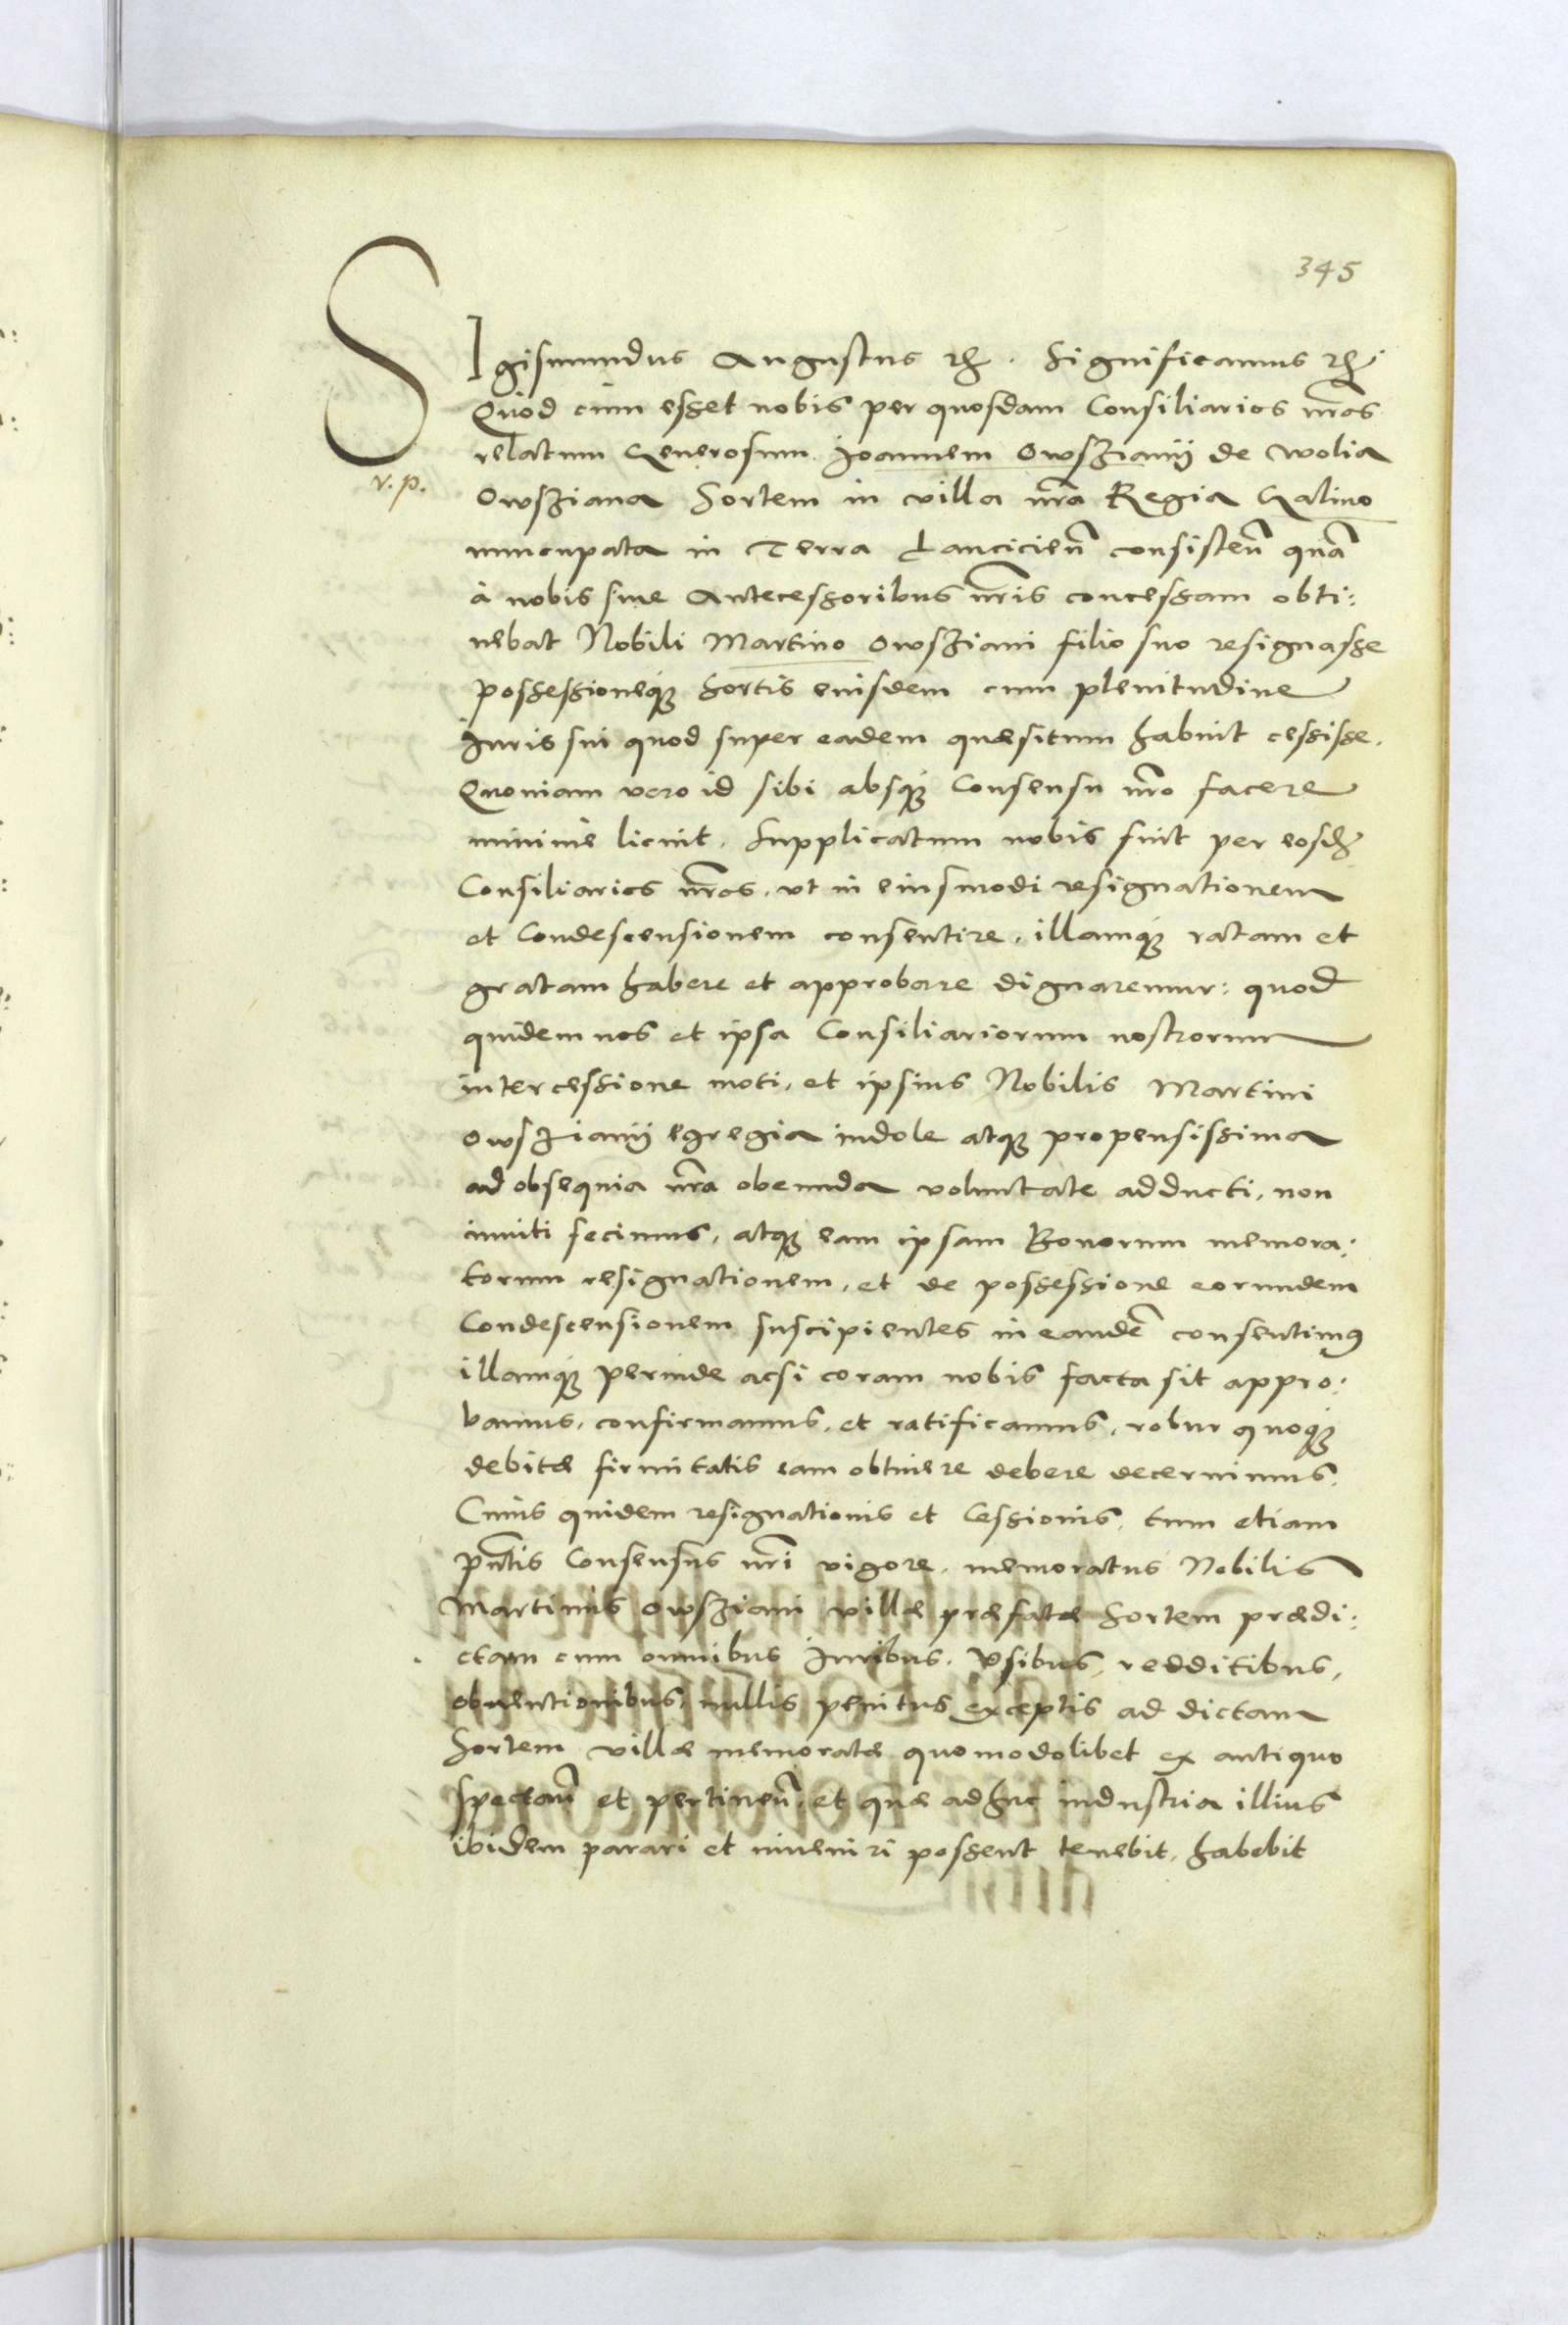 345
SIgismundus Augustus rc̃. Significamus rc̃.
Quod cum esset nobis per quosdam Consiliarios nr̃os
relatum Generosum Joannem Owsziany de Wolia
v. p.
Owsziana Sortem in villa nr̃a Regia Galino
nuncupata in Terra Lancicien̄ consisten̄ quā
à nobis siue Antecessoribus nr̃is concessam obti:
nebat Nobili Martino Owsziani filio suo resignasse
possessioneq́ꝫ Sortis eiusdem cum plenitudine
Iuris sui quod super eadem quæsitum habuit cessisse.
Quoniam vero id sibi absq́ꝫ Consensu nr̃o facere
minime licuit. Supplicatum nobis fuit per eosd̃
Consiliarios nr̃os, vt in eiusmodi resignationem
et Condescensionem consentire, illamq́ꝫ ratam et
gratam habere et approbare dignaremur: quod
quidem nos et ipsa Consiliariorum nostrorum
intercessione moti, et ipsius Nobilis Martini
Owsziany egregia indole atqꝫ propensissima
ad obsequia nr̃a obeunda voluntate adducti, non
inuiti fecimus, atqꝫ eam ipsam Bonorum memora:
torum resignationem, et de possessione eorundem
Condescensionem suscipientes in eandē consentimꝰ
illamq́ꝫ perinde acsi coram nobis facta sit appro:
bamus, confirmamus, et ratificamus, robur quoq́ꝫ
debitæ firmitatis eam obtinere debere decernimus.
Cuius quidem resignationis et Cessionis, tum etiam
pn̄tis Consensus nr̃i vigore, memoratus Nobilis
Martinus Owsziani villæ præfatæ Sortem prædi:
ctam cum omnibus Iuribus, Vsibus, redditibus,
obuentionibus, nullis penitus exceptis ad dictam
Sortem villæ memoratæ quomodolibet ex antiquo
spectan̄ et pertinen̄, et quæ adhuc industria illius
ibidem parari et inueniri possent tenebit, habebit